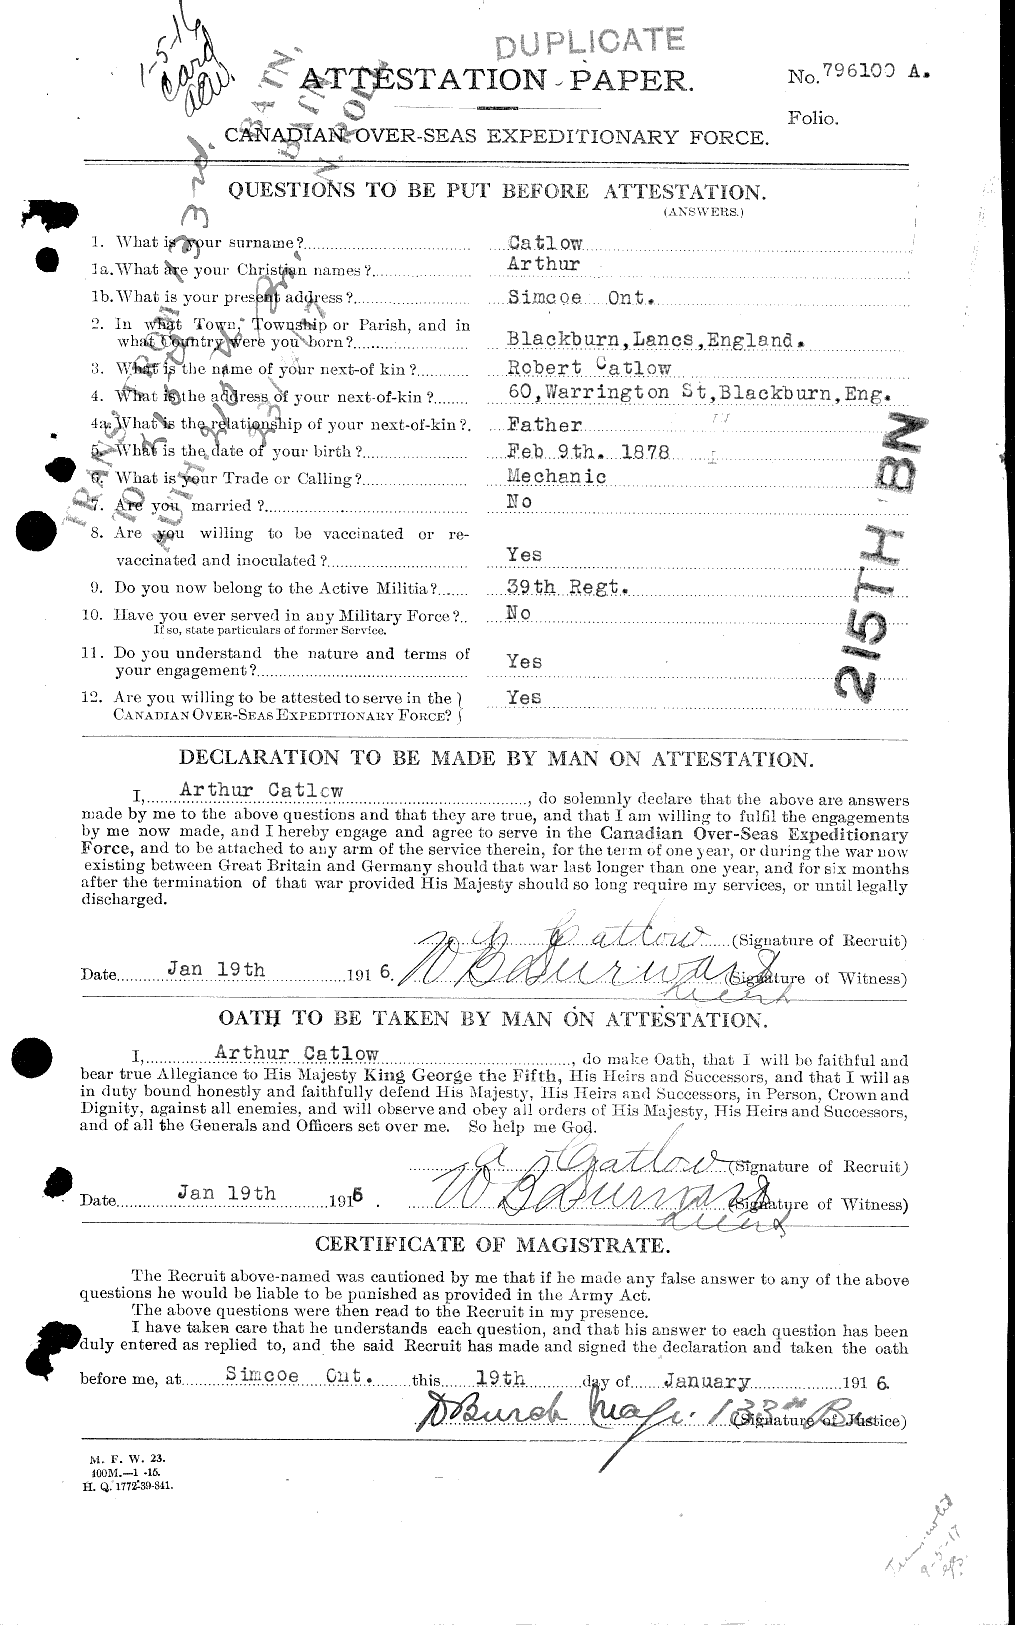 DUPLICATE
ATTESTATION PAPER.
No. 796100 A.
Folio.
CANADIAN OVER-SEAS EXPEDITIONARY FORCE.
1-5-16
Card
TRANS. FROM 133rd. BATN,
215TH BN
QUESTIONS TO BE PUT BEFORE ATTESTATION.
(ANSWERS.)
1. What is your surname? Catlow
1a. What are your Christian names? Arthur
1b. What is your present address? Simcoe Ont.
2. In what Town, Township or Parish, and in
what Country were you born? Blackburn,Lancs,England.
3. What is the name of your next-of kin? Robert Catlow
4. What is the address of your next-of-kin? 60,Warrington St,Blackburn,Eng.
4a. What is the relationship of your next-of-kin?. Father
5. What is the date of your birth? Feb 9th. 1878
6. What is your Trade or Calling? Mechanic
7. Are you married? No
8. Are you willing to be vaccinated or re-
vaccinated and inoculated? Yes
9. Do you now belong to the Active Militia? 39th Regt.
10. Have you ever served in any Military Force?.. No
If so, state particulars of former Service.
11. Do you understand the nature and terms of
your engagement? Yes
12. Are you willing to be attested to serve in the
CANADIAN OVER-SEAS EXPEDITIONARY FORCE? Yes
DECLARATION TO BE MADE BY MAN ON ATTESTATION.
I, Arthur Catlow, do solemnly declare that the above are answers
made by me to the above questions and that they are true, and that I am willing to fulfil the engagements
by me now made, and I hereby engage and agree to serve in the Canadian Over-Seas Expeditionary
Force, and to be attached to any arm of the service therein, for the term of one year, or during the war now
existing between Great Britain and Germany should that war last longer than one year, and for six months
after the termination of that war provided His Majesty should so long require my services, or until legally
discharged.
A Catlow (Signature of Recruit)
Date Jan 19th 1916. (Signature of Witness)
OATH TO BE TAKEN BY MAN ON ATTESTATION.
I, Arthur Catlow, do make Oath, that I will be faithful and
bear true Allegiance to His Majesty King George the Fifth, His Heirs and Successors, and that I will as
in duty bound honestly and faithfully defend His Majesty, His Heirs and Successors, in Person, Crown and
Dignity, against all enemies, and will observe and obey all orders of His Majesty, His Heirs and Successors,
and of all the Generals and Officers set over me. So help me God.
A Catlow (Signature of Recruit)
Date Jan 19th 1916. (Signature of Witness)
CERTIFICATE OF MAGISTRATE.
The Recruit above-named was cautioned by me that if he made any false answer to any of the above
questions he would be liable to be punished as provided in the Army Act.
The above questions were then read to the Recruit in my presence.
I have taken care that he understands each question, and that his answer to each question has been
duly entered as replied to, and the said Recruit has made and signed the declaration and taken the oath
before me, at Simcoe Ont. this 19th day of January 1916.
Maj. 133rd Bn (Signature of Justice)
M. F. W. 23.
400M.—1 -15.
H. Q. 1772-39-841.
9-5-17